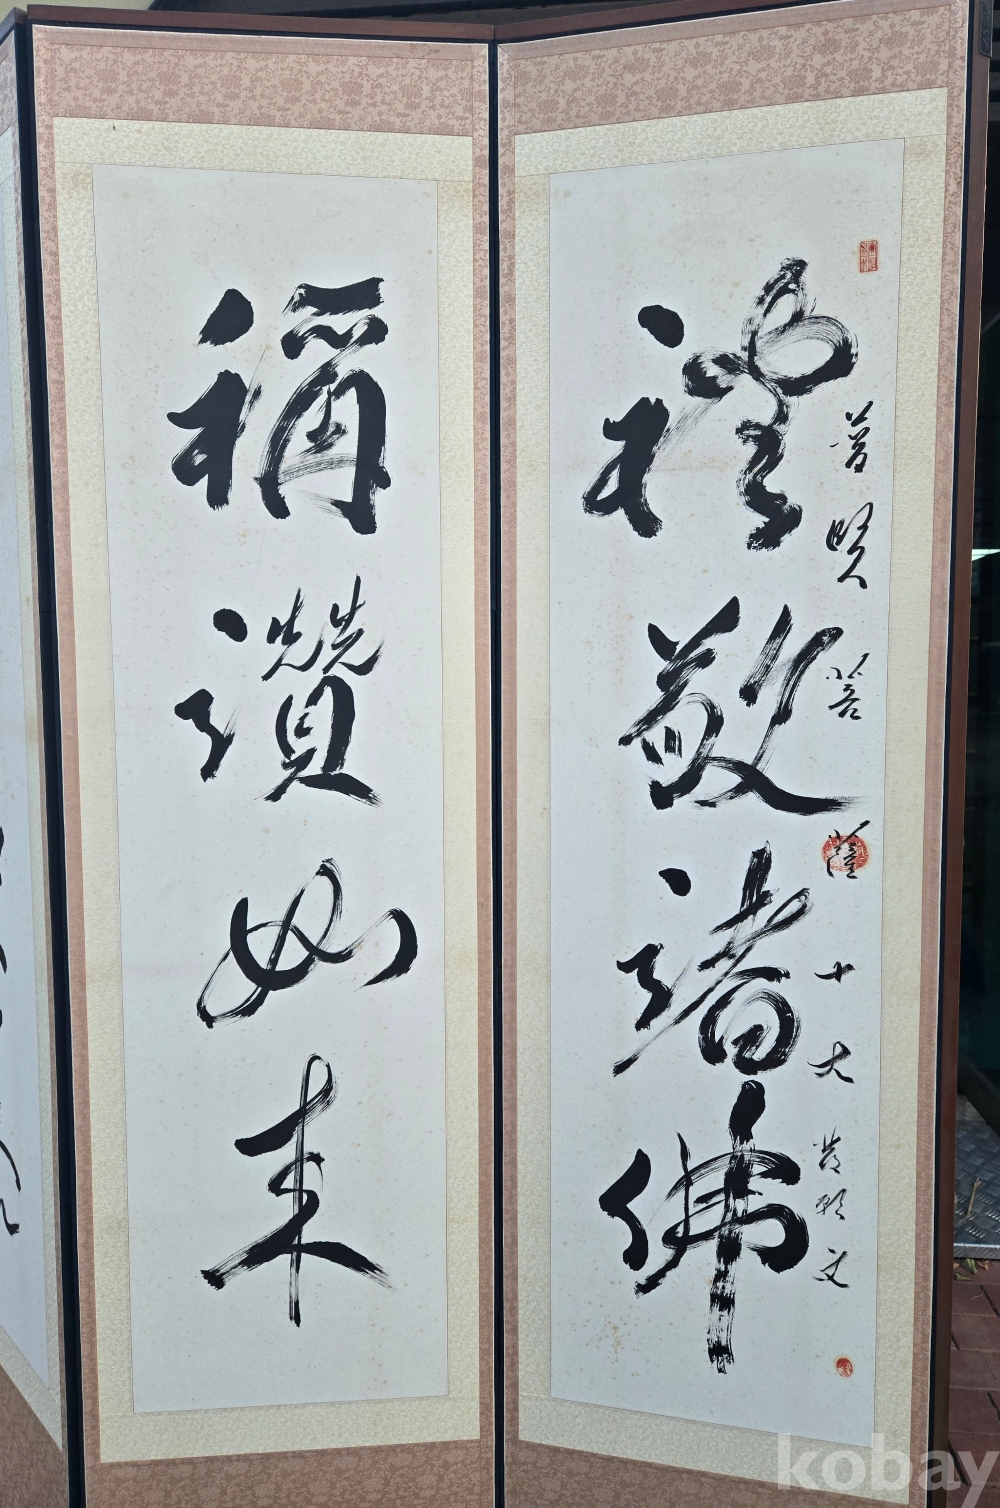 普賢菩薩十大發願文
禮敬諸佛
稱讚如來
kobay